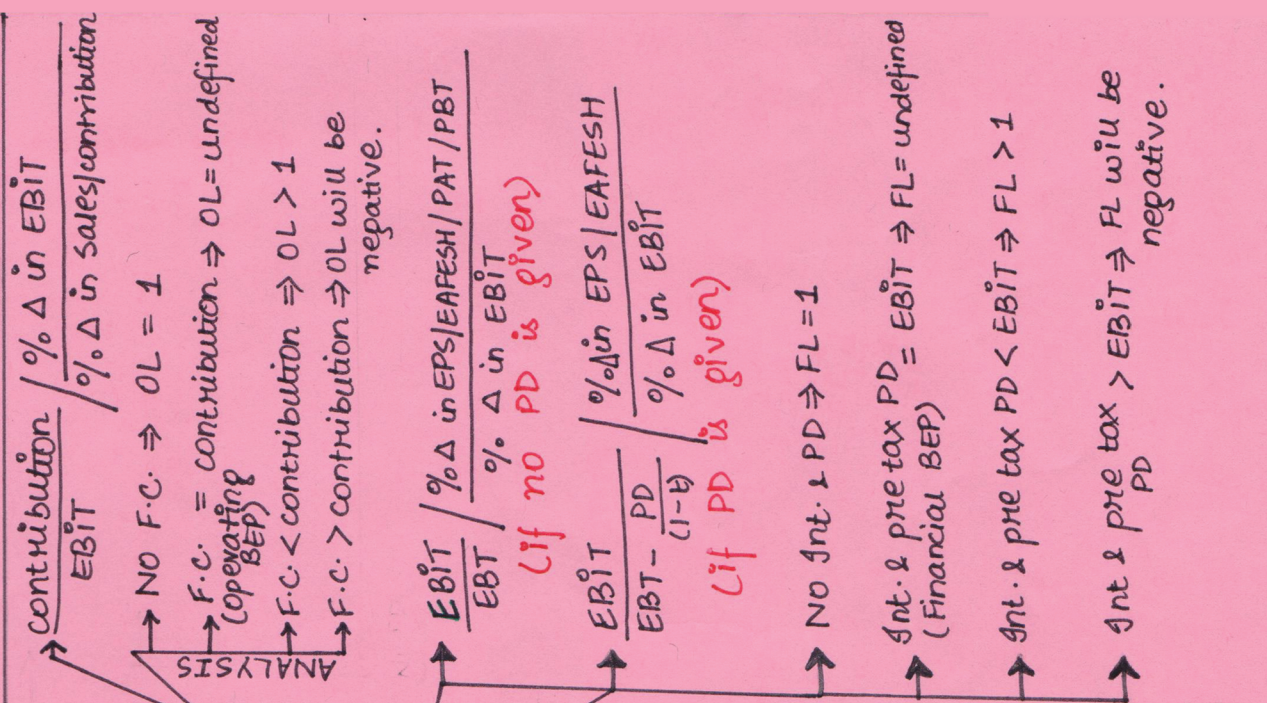 contribution / % Δ in EBIT
EBIT / % Δ in sales/contribution
NO F.C. ⇒ OL = 1
F.C. = contribution ⇒ OL = undefined
(operating
BEP)
F.C. < contribution ⇒ OL > 1
F.C. > contribution ⇒ OL will be
negative.
ANALYSIS
EBIT / % Δ in EPS/EAFESH/PAT/PBT
EBT / % Δ in EBIT
(if no PD is given)
EBIT / % Δ in EPS/EAFESH
EBT - PD/(1-t) / % Δ in EBIT
(if PD is given)
NO Int. & PD ⇒ FL = 1
Int. & pre tax PD = EBIT ⇒ FL = undefined
(Financial BEP)
Int. & pre tax PD < EBIT ⇒ FL > 1
Int & pre tax > EBIT ⇒ FL will be
PD negative.